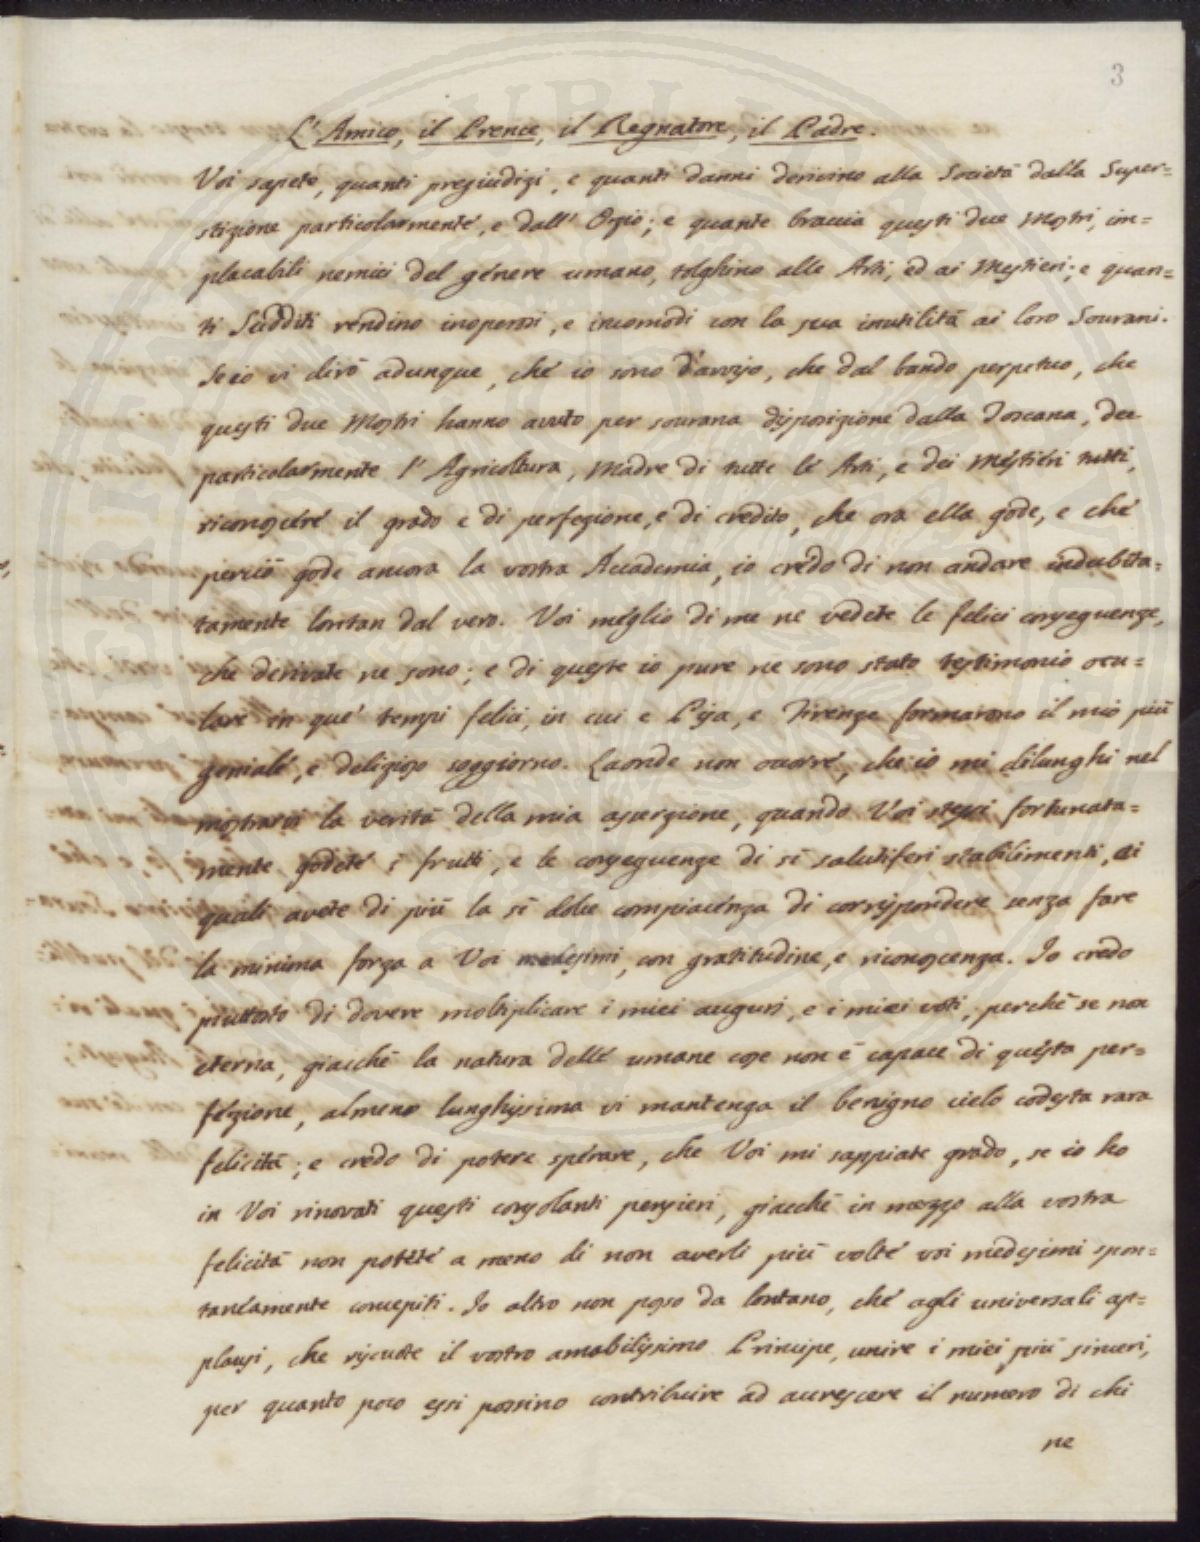 3
L'Amico, il Prence, il Regnatore, il Padre.
Voi sapete, quanti pregiudizi, e quanti danni derivino alla Società dalla Super=
stizione particolarmente, e dall' Ozio; e quante braccia questi due Mostri, im=
placabili nemici del genere umano, tolghino alle Arti, ed ai Mestieri; e quan=
ti Sudditi rendino inoperosi, e incomodi con la sua inutilità ai loro Sourani.
Se io vi dirò adunque, che io sono d'avviso, che dal bando perpetuo, che
questi due Mostri hanno avuto per sourana disposizione dalla Toscana, dee
particolarmente l'Agricoltura, Madre di tutte le Arti, e dei Mestieri tutti,
riconoscere il grado e di perfezione, e di credito, che ora ella gode, e che
perciò gode ancora la vostra Accademia, io credo di non andare indubita=
tamente lontan dal vero. Voi meglio di me ne vedete le felici conseguenze,
che derivate ne sono; e di queste io pure ne sono stato testimonio ocu=
lare in que' tempi felici, in cui e Pisa, e Firenze formarono il mio più
geniale, e delizioso soggiorno. Laonde non occorre, che io mi dilunghi nel
mostrarvi la verità della mia asserzione, quando Voi stessi fortunata=
mente godete i frutti, e le conseguenze di sì salutiferi stabilimenti, ai
quali avete di più la sì dolce compiacenza di corrispondere senza fare
la minima forza a Voi medesimi, con gratitudine, e riconoscenza. Io credo
piuttosto di dovere moltiplicare i miei augurj, e i miei voti, perchè se non
eterna, giacchè la natura delle umane cose non è capace di questa per=
fezione, almeno lunghissima vi mantenga il benigno cielo codesta rara
felicità; e credo di potere sperare, che Voi mi sappiate grado, se io ho
in Voi rinovati questi consolanti pensieri, giacchè in mezzo alla vostra
felicità non potete a meno di non averli più volte voi medesimi spon=
taneamente concepiti. Io altro non posso da lontano, che agli universali ap=
plausi, che riscuote il vostro amabilissimo Principe, unire i miei più sinceri,
per quanto poco essi possino contribuire ad accrescere il numero di chi
ne